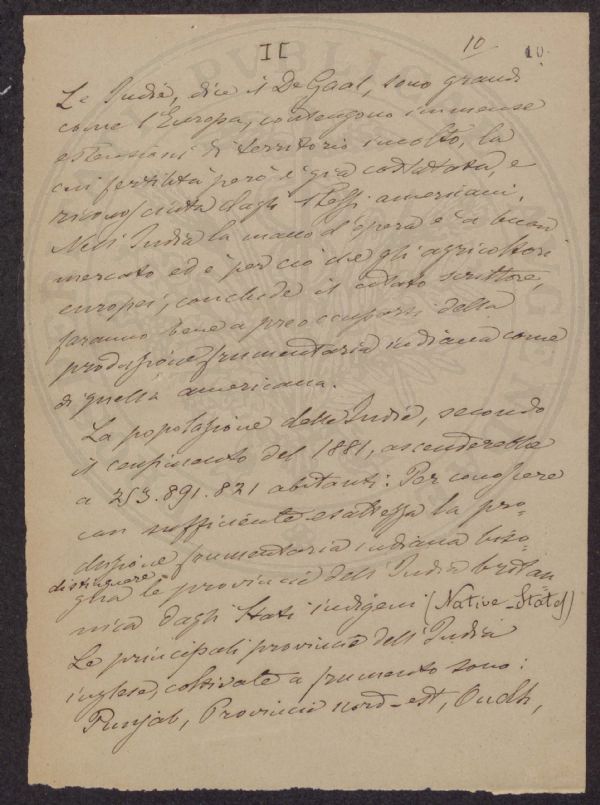 IC
10
10.
Le Indie, dice il De Gaal, sono grandi
come l'Europa, contengono immense
estensioni di territorio incolto, la
cui fertilità però è già constatata, e
riconosciuta dagli stessi americani.
Nell'India la mano d'opera è a buon
mercato ed è perciò che gli agricoltori
europei, conchiude il citato scrittore,
faranno bene a preoccuparsi della
produzione frumentaria indiana come
di quella americana.
La popolazione delle Indie, secondo
il censimento del 1881, ascenderebbe
a 253.891.821 abitanti: Per conoscere
con sufficiente esattezza la pro-
duzione frumentaria indiana biso-
distinguere
gna le provincie dell'India britan
nica dagli Stati indigeni (Native-States)
Le principali provincie dell'India
inglese, coltivate a frumento sono:
Punjab, Provincie nord-est, Oudh,